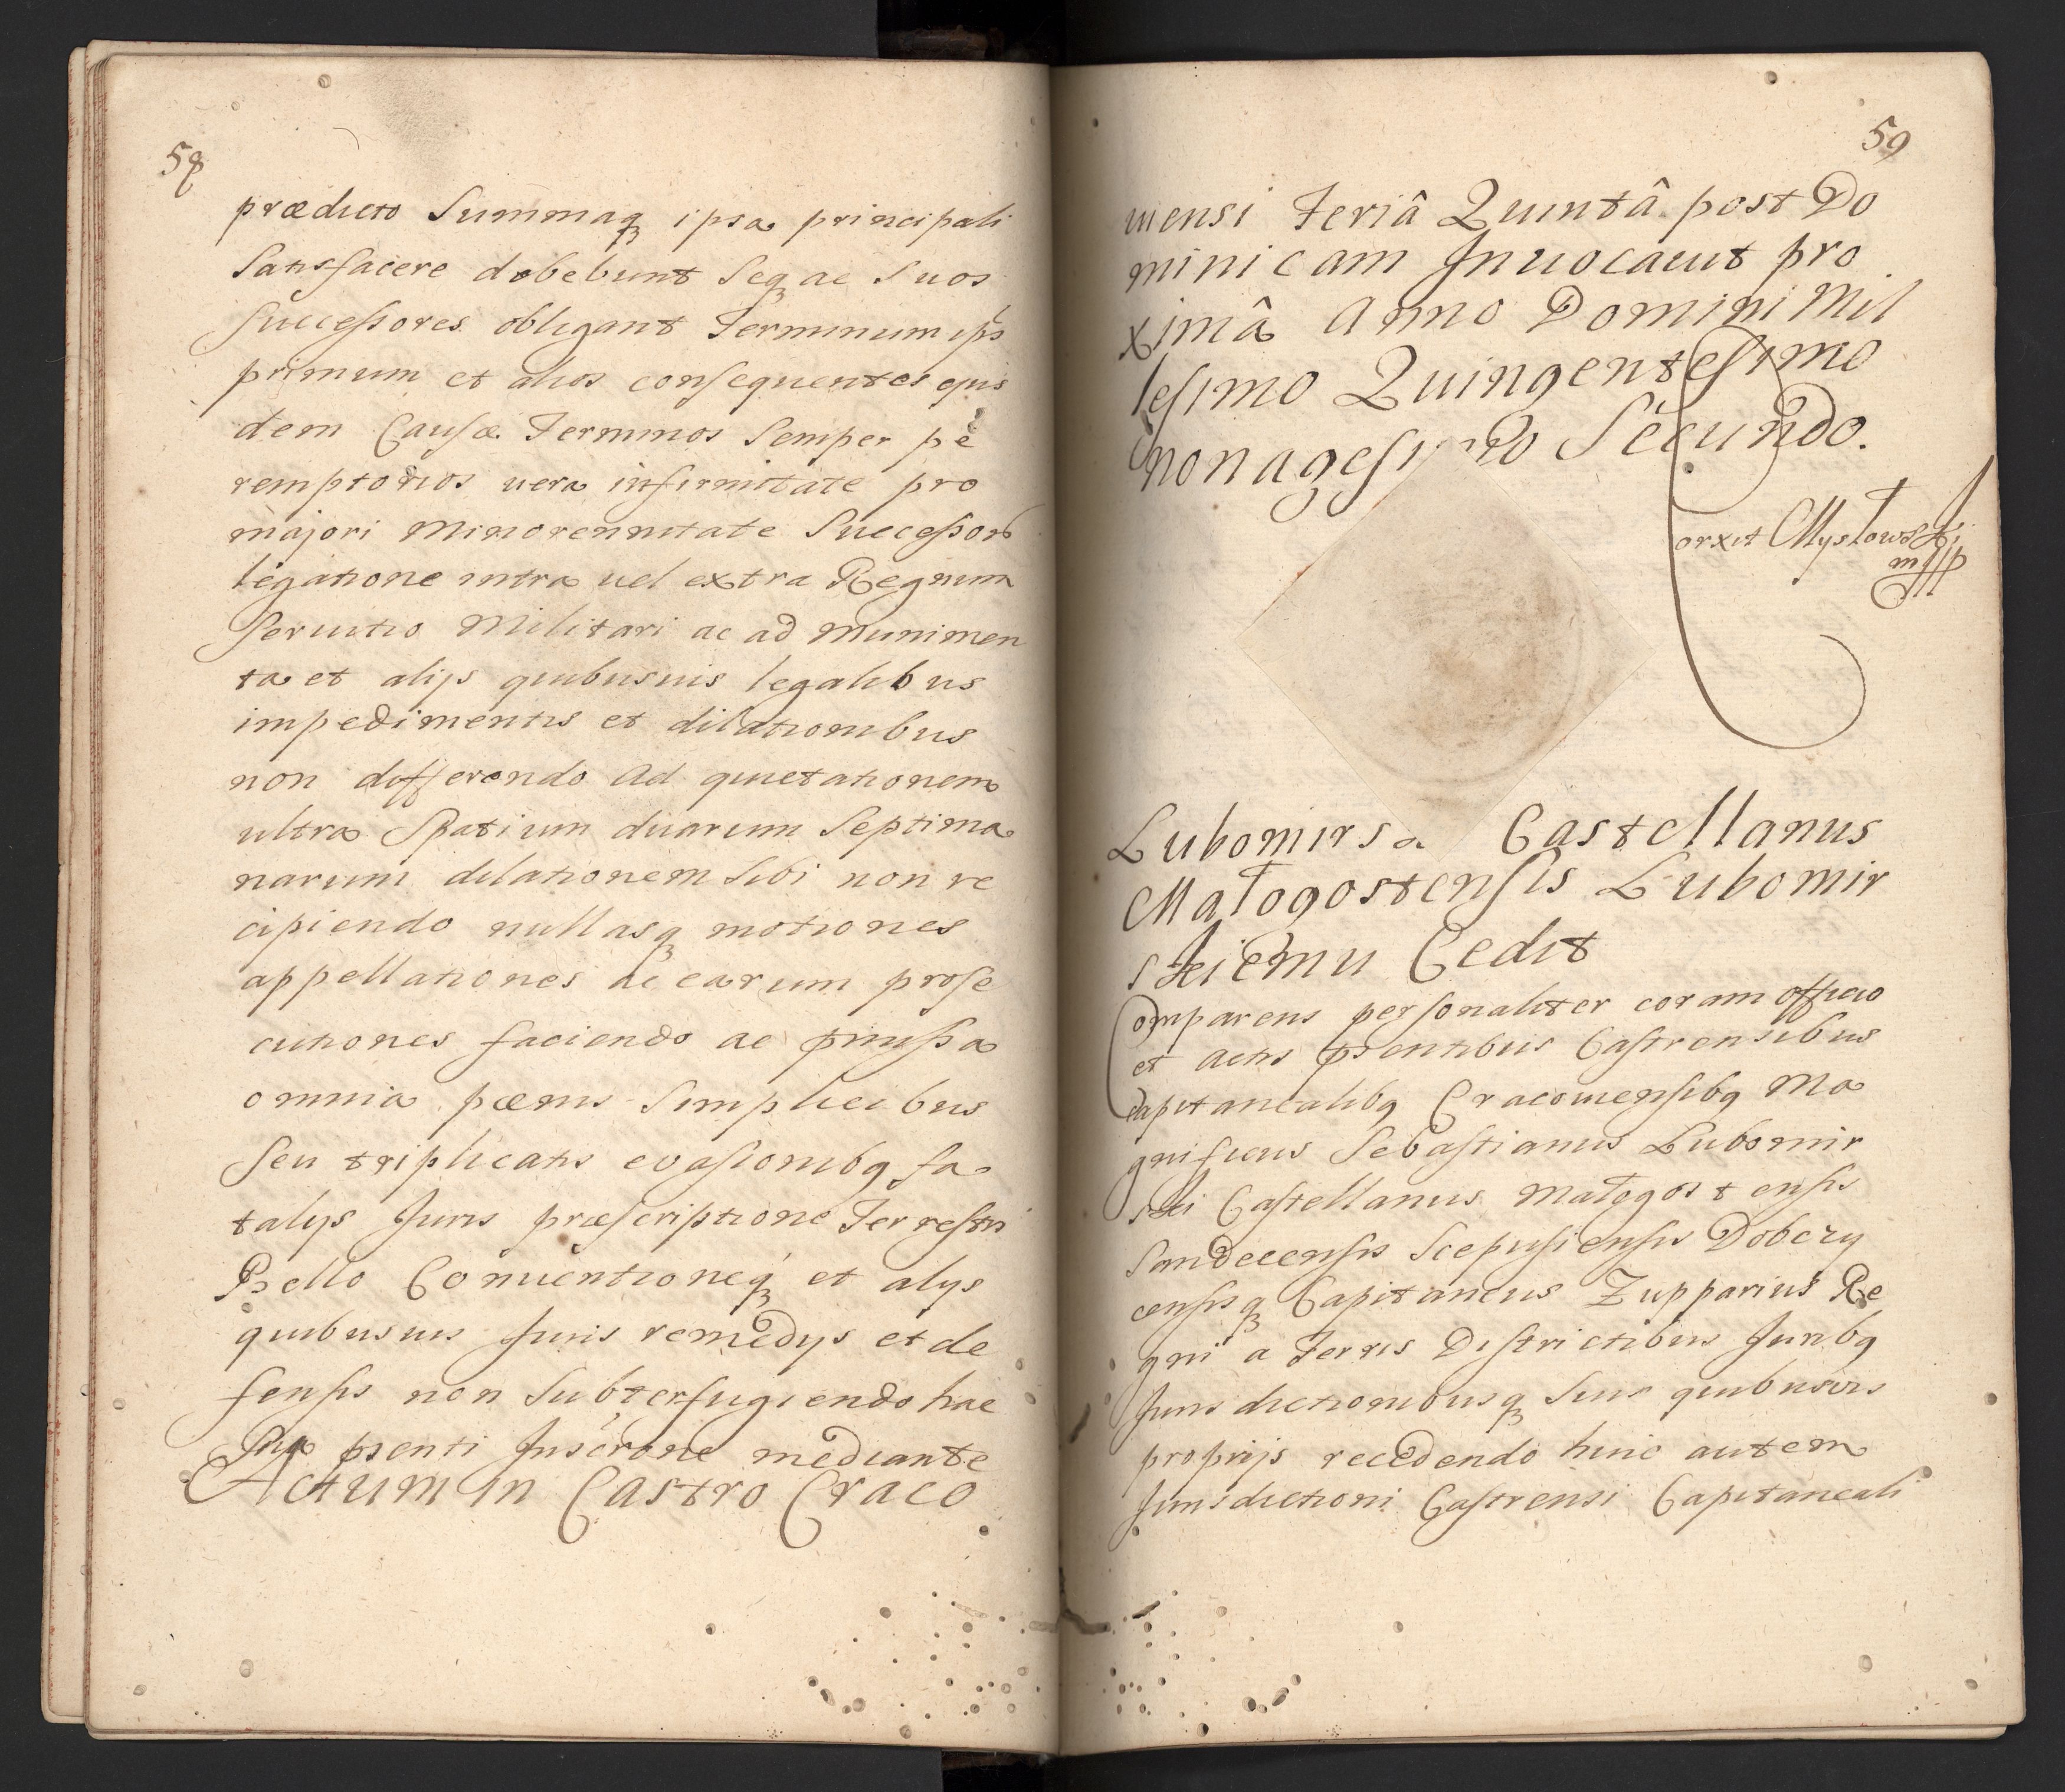 58
prædicto Summaq, ipsa principali
Satisfacere debebunt Seq, ac Suos
Successores obligant Terminum ips
primum et alios consequentes ejus
dem Causæ Terminos Semper pe
remptorios vera infirmitate pro
majori Minorennitate Successor
legatione intra uel extra Regnum
Seruitio Militari ac ad Munimen
ta et alijs quibusuis legalibus
impedimentis et dilationibus
non differendo Ad quietationem
ultra Spatium duarum Septima
narum dilationem Sibi non re
cipiendo nullasq, motiones
appellationes ac earum prose
cutiones faciendo ac pmissa
omnia pænis Simplicibus
Seu triplicatis euasionibq fa
talijs Juris præscriptione Terrestri
Bello Conuentioneq, et alijs
quibusuis Juris remedijs et de
fensis non Subterfugiendo hac
psenti Inscrone mediante
Actum in Castro Craco
59
uiensi Feriâ Quintâ post Do
minicam Inuocauit pro
ximâ Anno Domini Mil
lesimo Quingentesimo
nonagesimo Secundo.
orxit Mysłowski
mpp
Lubomirs a Castellanus
Małogostensis Lubomir
skiemu Cedit
Comparens personaliter coram officio
et actis psentibus Castrensibus
Capitanealibq Cracouiensibq Ma
gnificus Sebastianus Lubomir
ski Castellanus Małogostensis
Sandecensis Scepusiensis Dobczy
censisq, Capitaneus Zupparius Re
gni a Terris Districtibus Juribq
Jurisdictionibusq, Suis quibusuis
proprijs recedendo huic autem
Jurisdictioni Castrensi Capitaneali